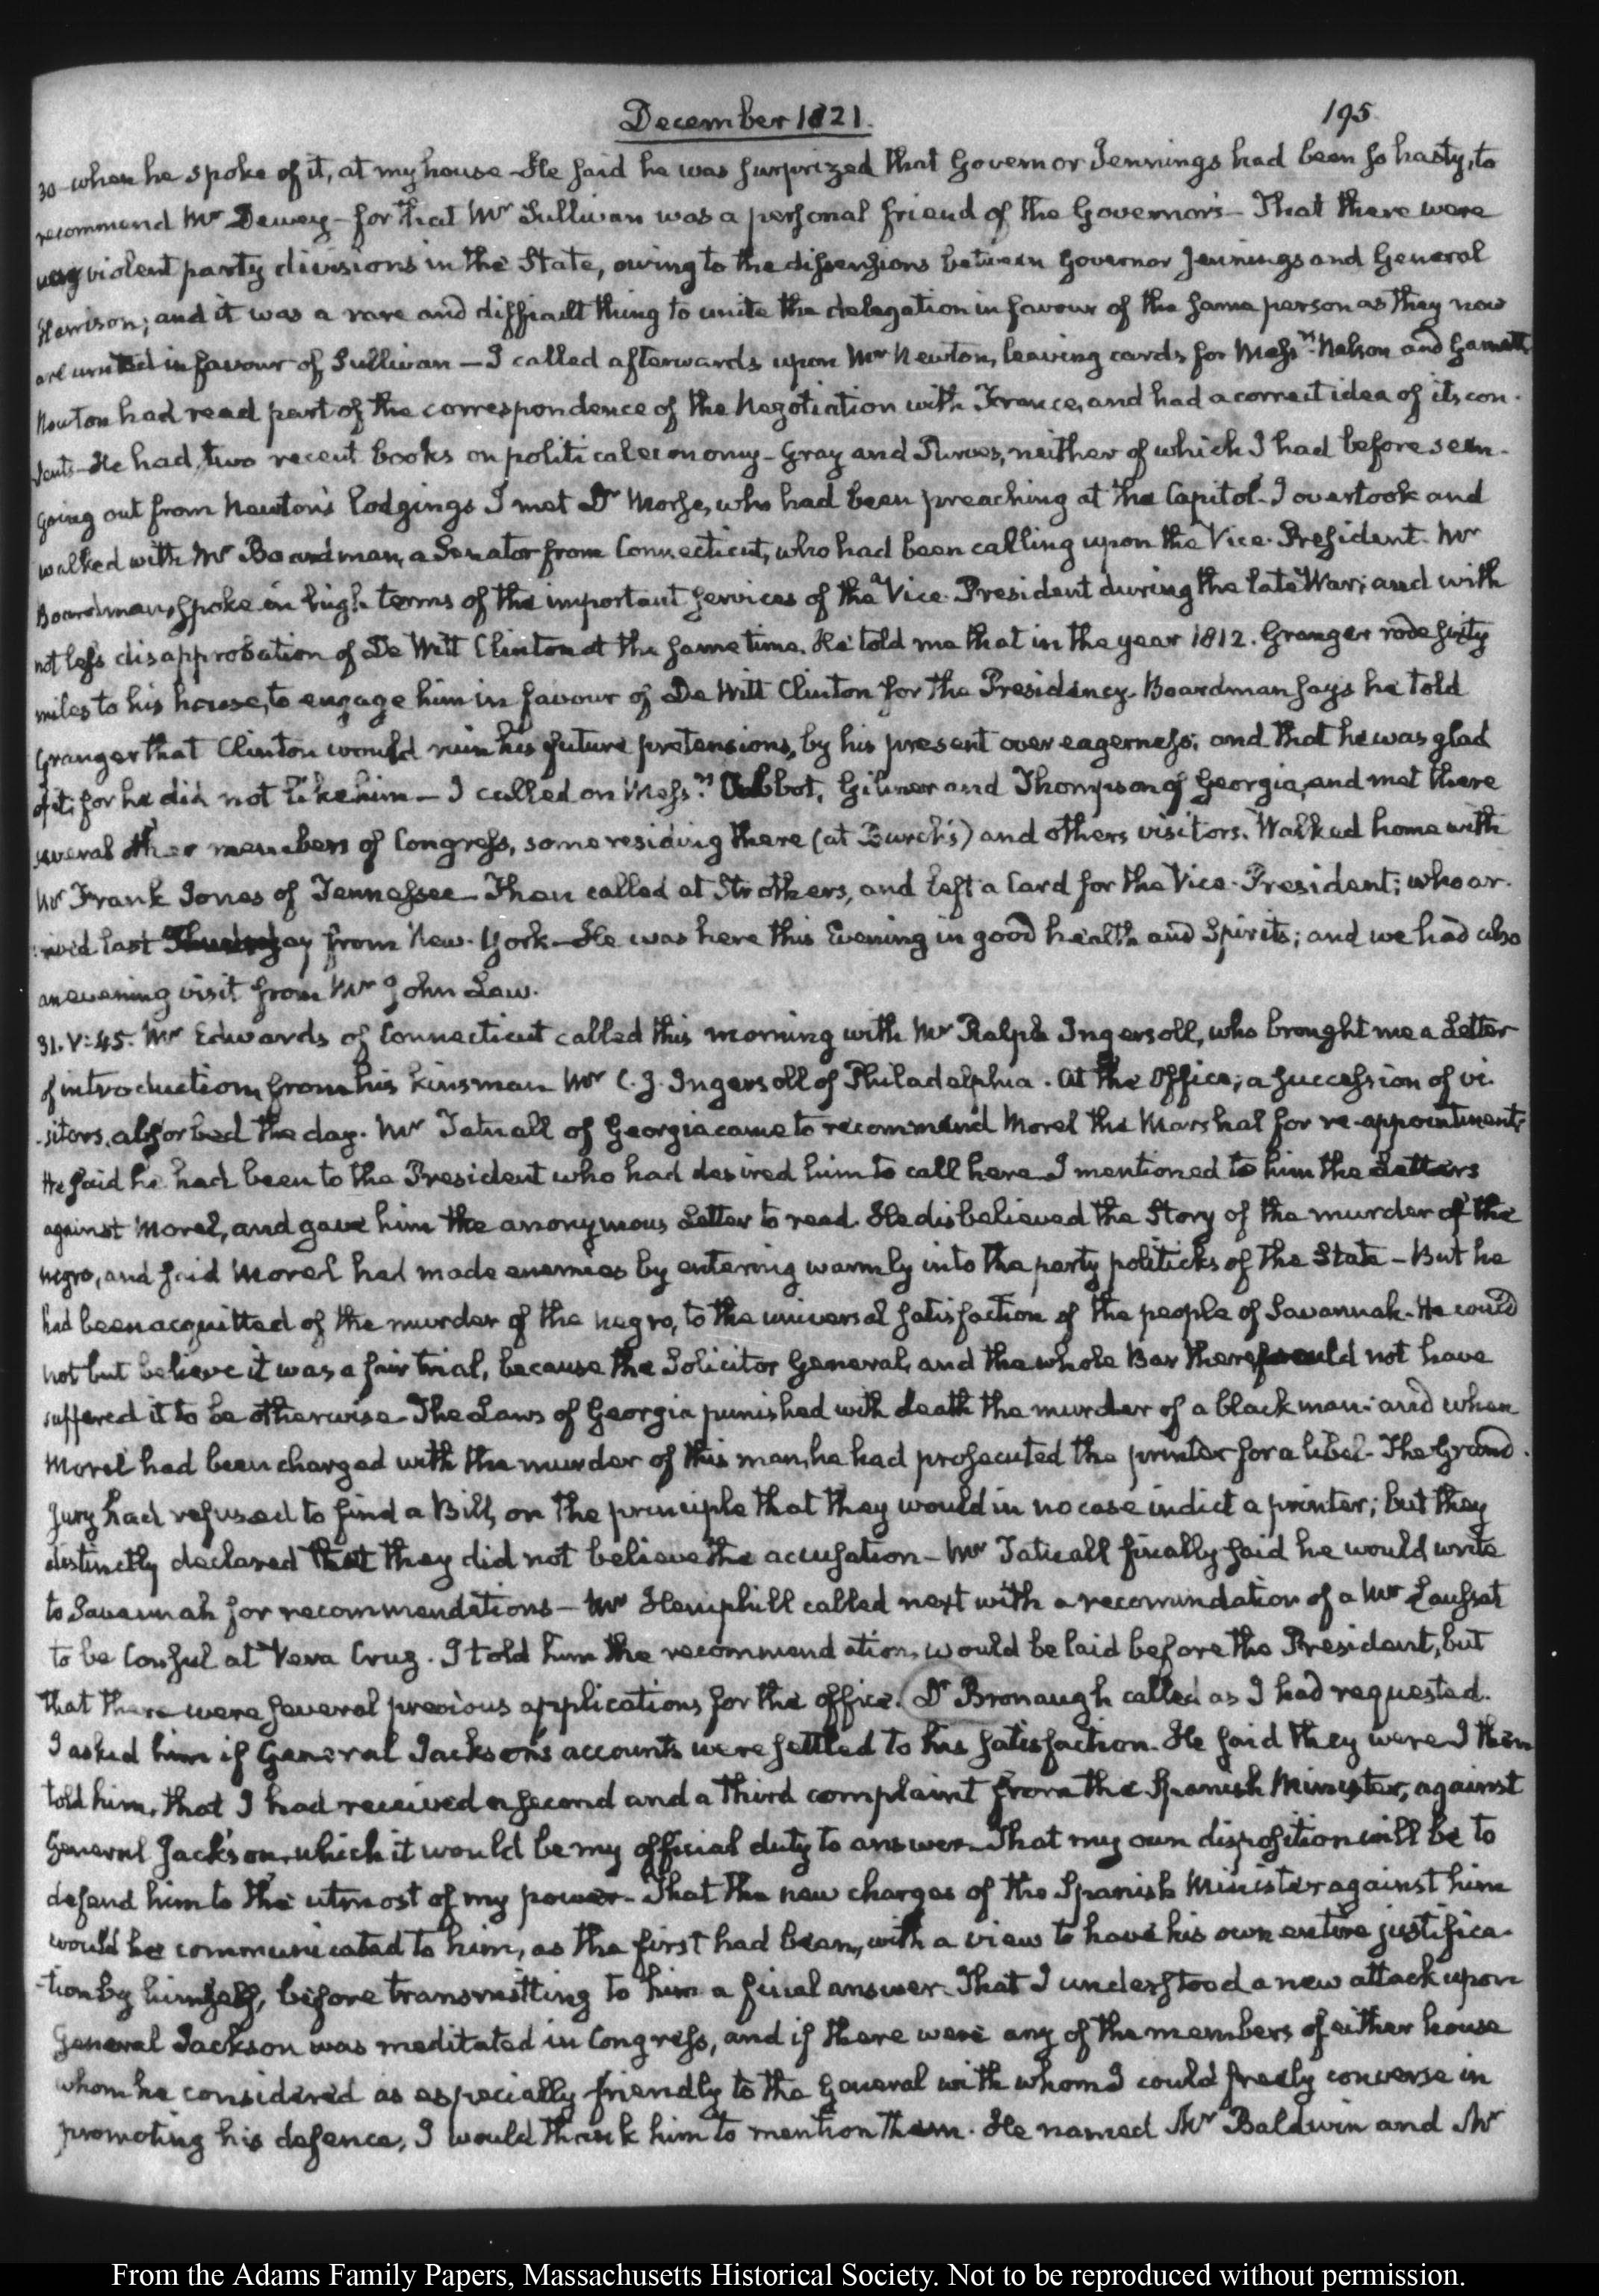 December 1821.
195
30 when he spoke of it, at my house – He said he was surprized that Governor Jennings had been so hasty, to
recommend Mr Dewey – for that Mr Sullivan was a personal friend of the Governor's – That there were
very violent party divisions in the State, owing to the dissensions between Governor Jennings and General
Harrison; and it was a rare and difficult thing to unite the delegation in favour of the same person as they now
are united in favour of Sullivan – I called afterwards upon Mr Newton, leaving cards for Messrs. Nelson and Garnett
Newton had read part of the correspondence of the Negotiation with France, and had a correct idea of its con-
tents – He had two recent books on political economy – Gray and Purves, neither of which I had before seen.
Going out from Newton's lodgings I met Dr Morse, who had been preaching at the Capitol. I overtook and
walked with Mr Boardman, a Senator from Connecticut, who had been calling upon the Vice-President. Mr
Boardman spoke in high terms of the important services of the Vice-President during the late War; and with
not less disapprobation of De Witt Clinton at the same time. He told me that in the year 1812. Granger rode sixty
miles to his house, to engage him in favour of De Witt Clinton for the Presidency. Boardman says he told
Granger that Clinton would ruin his future pretensions, by his present over eagerness; and that he was glad
of it; for he did not like him – I called on Messrs. Abbot, Gilmer and Thompson of Georgia, and met there
several other members of Congress, some residing there (at Burch's) and others visitors. Walked home with
Mr Frank Jones of Tennessee – Then called at Strothers, and left a Card for the Vice-President; who ar-
rived last from New-York – He was here this Evening in good health and Spirits; and we had also
an evening visit from Mr John Law.
31. V:45. Mr Edwards of Connecticut called this morning with Mr Ralph Ingersoll, who brought me a Letter
of introduction from his kinsman Mr C. J. Ingersoll of Philadelphia. At the Office; a succession of vi-
-sitors, absorbed the day. Mr Tatnall of Georgia came to recommend Morel the Marshal for re-appointment.
He said he had been to the President who had desired him to call here I mentioned to him the Letters
against Morel, and gave him the anonymous Letter to read. He disbelieved the Story of the murder of the
negro, and said Morel had made enemies by entering warmly into the party politicks of the State – But he
had been acquitted of the murder of the negro, to the universal satisfaction of the people of Savannah. He could
not but believe it was a fair trial, because the Solicitor General, and the whole Bar there would not have
suffered it to be otherwise – The Laws of Georgia punished with death the murder of a black man: and when
Morel had been charged with the murder of this man, he had prosecuted the printer for a libel – The Grand
Jury had refused to find a Bill, on the principle that they would in no case indict a printer; but they
distinctly declared that they did not believe the accusation – Mr Tatnall finally said he would write
to Savannah for recommendations – Mr Hemphill called next with a recommndation of a Mr Laussat
to be Consul at Vera Cruz. I told him the recommendation, would be laid before the President, but
that there were several previous applications for the office. Dr Bronaugh called as I had requested.
I asked him if General Jackson's accounts were settled to his satisfaction. He said they were I then
told him, that I had received a second and a third complaint from the Spanish Minister, against
General Jackson, which it would be my official duty to answer – That my own disposition will be to
defend him to the utmost of my power – That the new charges of the Spanish Minister against him
would be communicated to him, as the first had been, with a view to have his own entire justifica-
-tion by himself, before transmitting to him a final answer. That I understood a new attack upon
General Jackson was meditated in Congress, and if there were any of the members of either house
whom he considered as especially friendly to the General with whom I could freely converse in
promoting his defence, I would thank him to mention them. He named Mr Baldwin and Mr
From the Adams Family Papers, Massachusetts Historical Society. Not to be reproduced without permission.